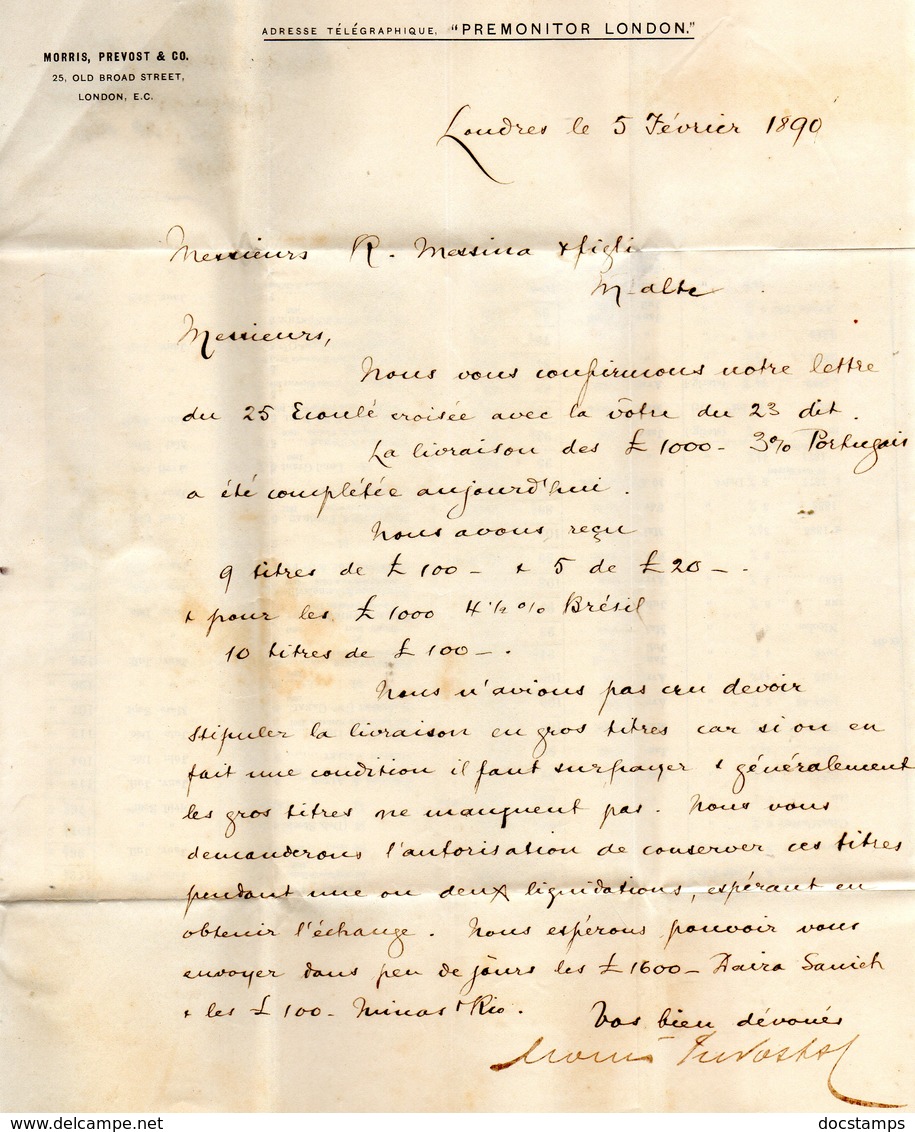 ADRESSE TÉLÉGRAPHIQUE, "PREMONITOR LONDON."
MORRIS, PREVOST & CO.
25, OLD BROAD STREET,
LONDON, E.C.
Londres le 5 Février 1890
Messieurs R. Messina & figli
Malte
Messieurs,
Nous vous confirmons notre lettre
du 25 Ecoulé croisée avec la vôtre du 23 dit.
La livraison des £1000 - 3% Portugais
a été complétée aujourd'hui.
Nous avons reçu
9 titres de £100 - & 5 de £20 - .
& pour les £1000 4½% Brésil
10 titres de £100 - .
Nous n'avions pas cru devoir
stipuler la livraison en gros titres car si on en
fait une condition il faut surpayer & généralement
les gros titres ne manquent pas. Nous vous
demanderons l'autorisation de conserver ces titres
pendant une ou deux liquidations, espérant en
obtenir l'échange. Nous espérons pouvoir vous
envoyer dans peu de jours les £1600 - Daira Sanieh
& les £100 - Minas & Rio.
Vos bien dévoués
Morris Prevost &
Delcampe.net
docstamps